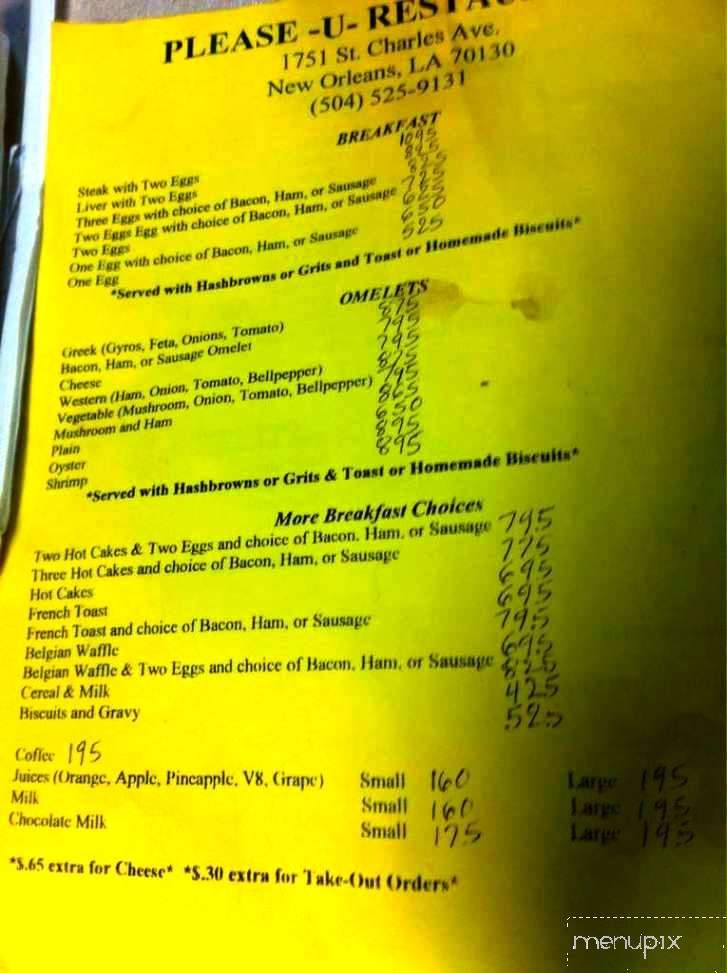 PLEASE -U- RESTAU
1751 St. Charles Ave.
New Orleans, LA 70130
(504) 525-9131
BREAKFAST
Steak with Two Eggs 1095
Liver with Two Eggs 895
Three Eggs with choice of Bacon, Ham, or Sausage
Two Eggs Egg with choice of Bacon, Ham, or Sausage
Two Eggs
One Egg with choice of Bacon, Ham, or Sausage 650
One Egg 525
*Served with Hashbrowns or Grits and Toast or Homemade Biscuits*
OMELETS
Greek (Gyros, Feta, Onions, Tomato) 875
Bacon, Ham, or Sausage Omelet 795
Cheese 795
Western (Ham, Onion, Tomato, Bellpepper) 875
Vegetable (Mushroom, Onion, Tomato, Bellpepper) 795
Mushroom and Ham 865
Plain 650
Oyster 895
Shrimp 895
*Served with Hashbrowns or Grits & Toast or Homemade Biscuits*
More Breakfast Choices
Two Hot Cakes & Two Eggs and choice of Bacon, Ham, or Sausage 795
Three Hot Cakes and choice of Bacon, Ham, or Sausage 775
Hot Cakes 695
French Toast 695
French Toast and choice of Bacon, Ham, or Sausage 795
Belgian Waffle 695
Belgian Waffle & Two Eggs and choice of Bacon, Ham, or Sausage 825
Cereal & Milk 425
Biscuits and Gravy 525
Coffee 195
Juices (Orange, Apple, Pineapple, V8, Grape) Small 160 Large 195
Milk Small 160 Large 195
Chocolate Milk Small 175 Large 195
*$.65 extra for Cheese* *$.30 extra for Take-Out Orders*
menupix